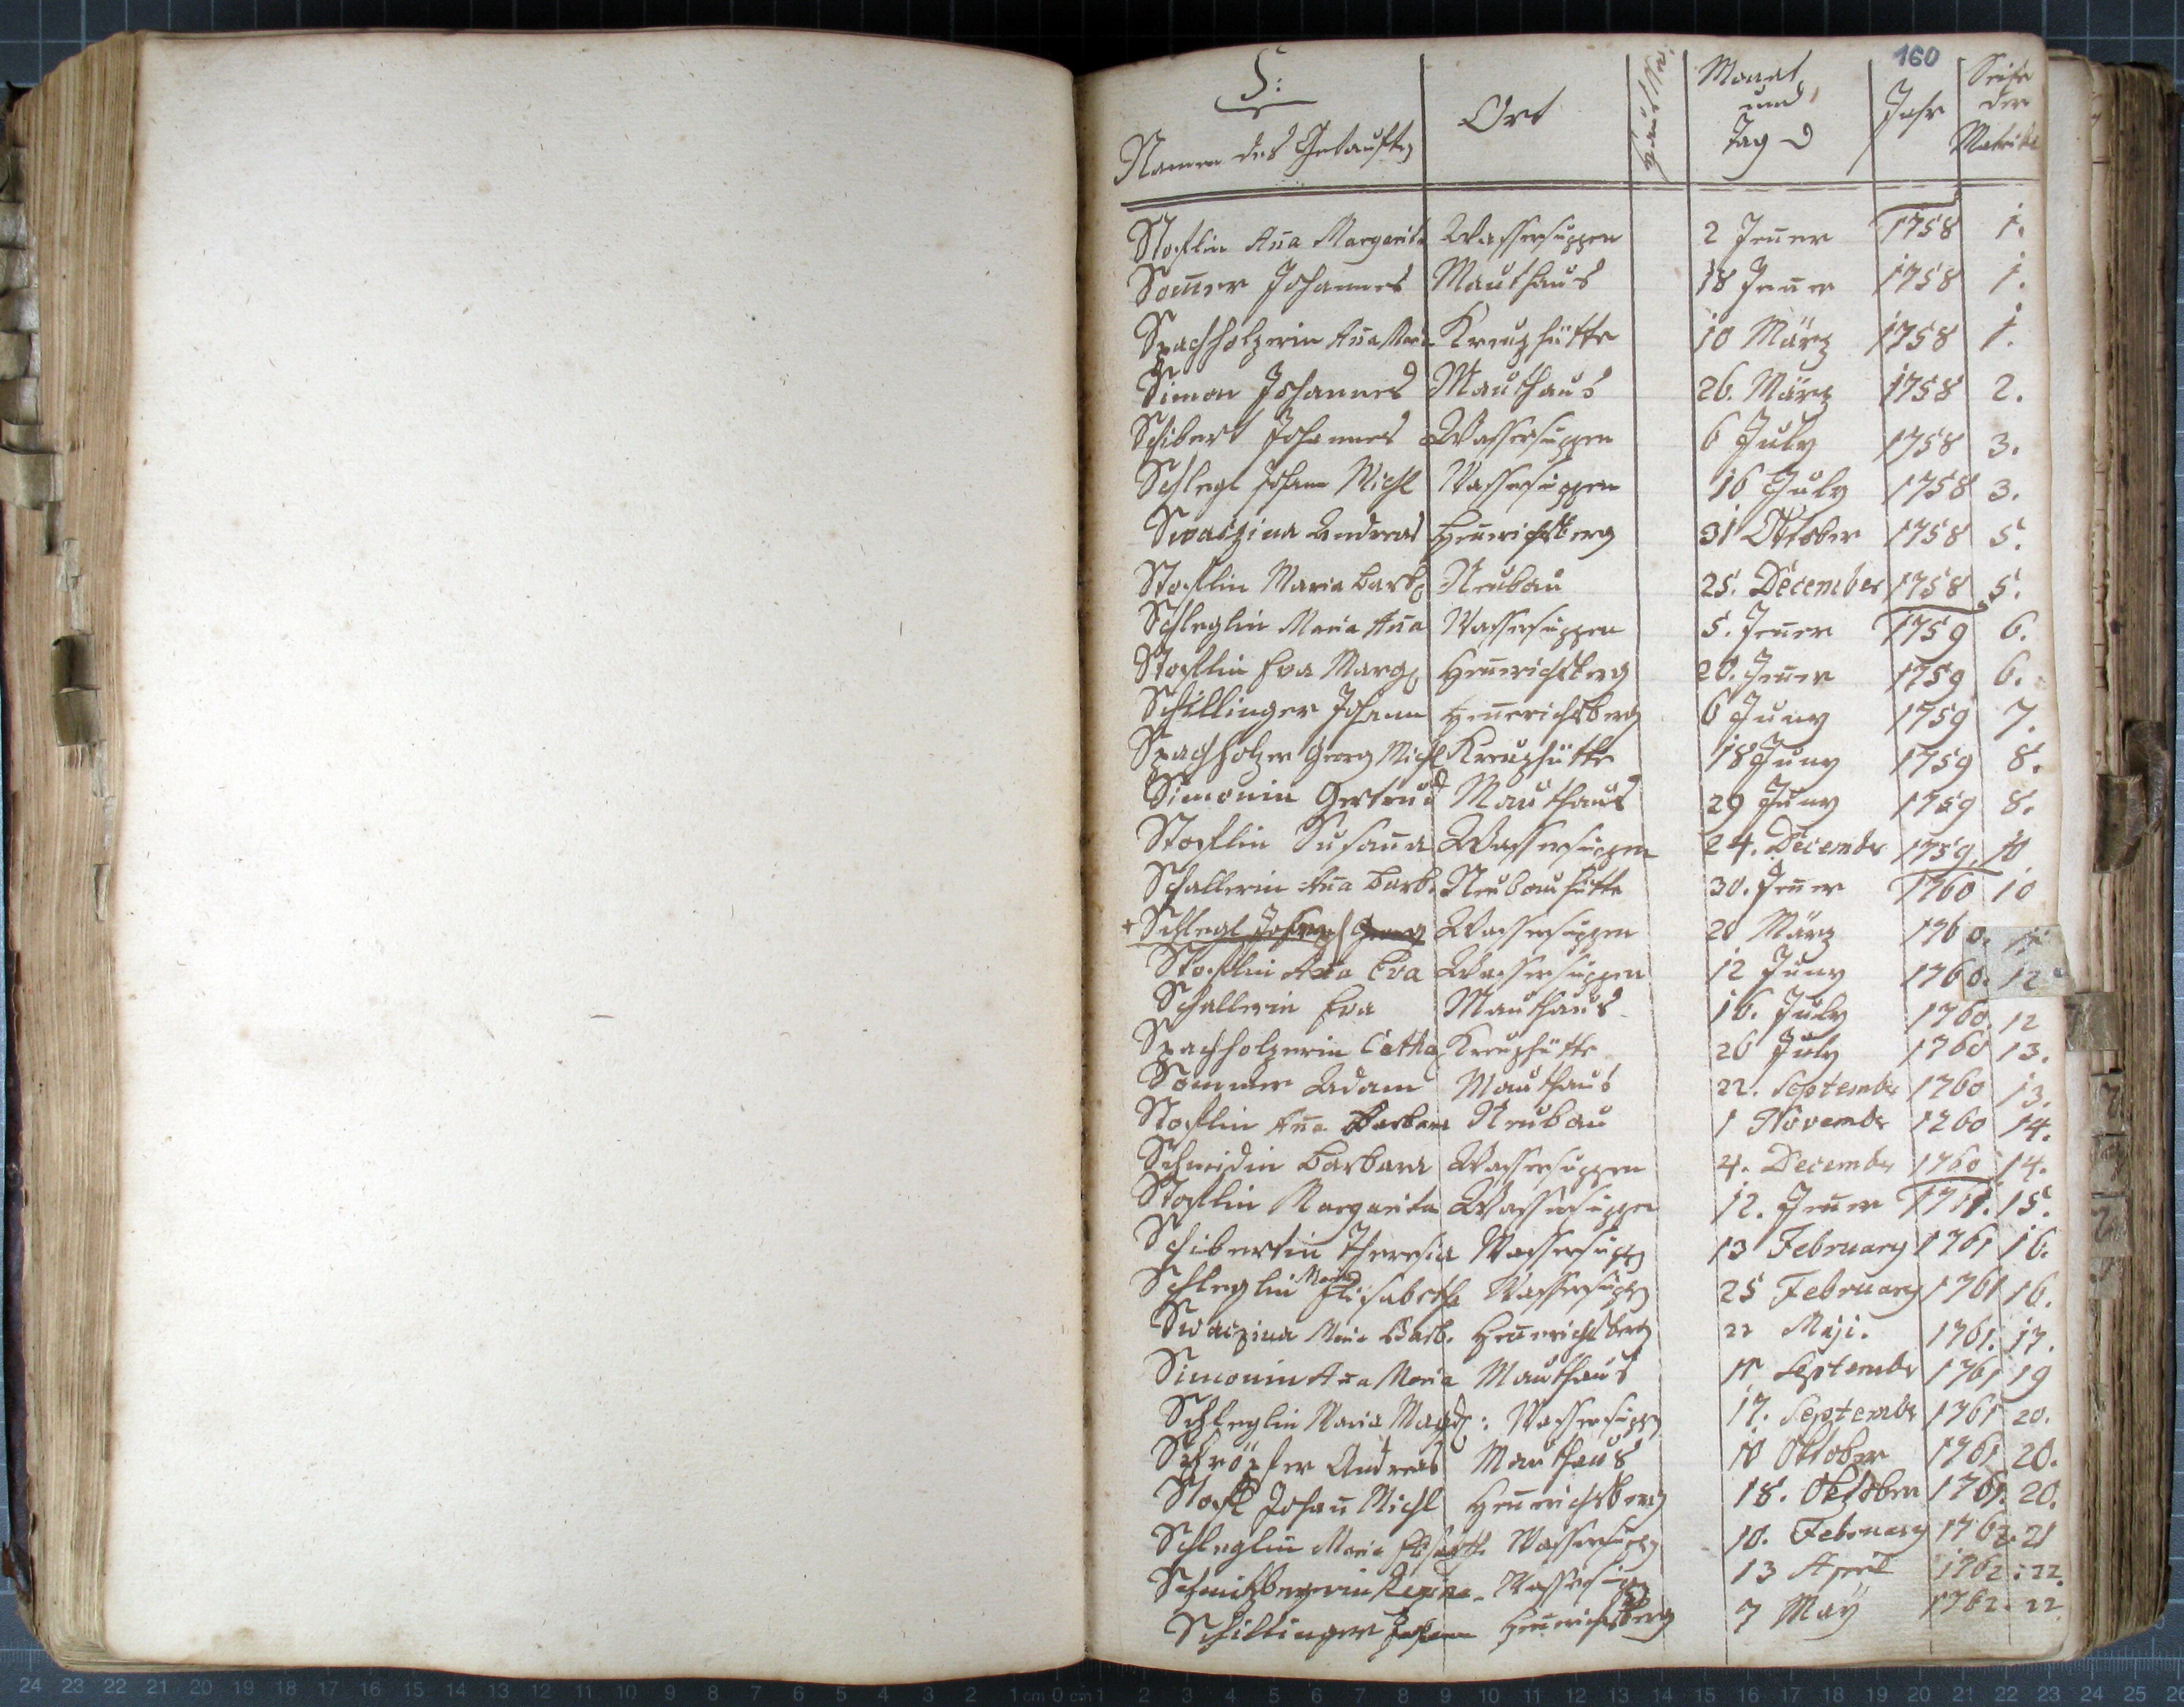 160
S:
Namen des Getauften Ort Haus Nr. Monat und Tag Jahr Seite der Matrikl
Stoslin Ana Margarita Wassersuppen 2 Jener 1758 1.
Somer Johannes Mauthaus 18 Jener 1758 1.
Spachholzerin Ana Maria Kreuzhütte 10 März 1758 1.
Simon Johannes Mauthaus 26. März 1758 2.
Schibert Johannes Wassersuppen 6 July 1758 3.
Schlegl Johann Michl Wassersuppen 16 July 1758 3.
Swaczina Andreas Henerichsberg 31 Oktober 1758 5.
Stoslin Maria Barb. Neubau 25. December 1758 5.
Schleglin Maria Ana Wassersuppen 5. Jener 1759 6.
Stoslin Eva Marg. Henerichsberg 20. Jener 1759 6.
Schillinger Johann Henerichsberg 6 Juny 1759 7.
Spachholzer Georg Michl Kreuzhütte 18 Juny 1759 8.
Simonin Gertrud Mauthaus 29 Juny 1759 8.
Stoslin Susana Wassersuppen 24. Decembr 1759. 10
Schallerin Ana Barb. Neubauhütte 30. Jener 1760 10
+ Schlegl Joseph Georg Wassersuppen 20 März 1760. 11
Stoslin Ana Eva Wassersuppen 12 Juny 1760. 12
Schallerin Eva Mauthaus 16. July 1760. 12
Spachholzerin Catha. Kreuzhütte 26 July 1760 13.
Sommer Adam Mauthaus 22. Septembr 1760 13.
Stoslin Ana Barbara Neubau 1 Novembr 1760 14.
Schmidin Barbara Wassersuppen 4. Decembr 1760 14.
Stoslin Margarita Wassersuppen 12. Jener 1761. 15.
Schibertin Theresia Wassersupp 13 February 1761 16.
Schleglin Maria Elisabetha Wassersupp 25 February 1761 16.
Swaczina Maria Barb. Henerichsberg 22 Maji. 1761. 17.
Simonin Ana Maria Mauthaus 11 Septembr 1761 19
Schleglin Maria Magd: Wassersupp 17. Septembr 1761 20.
Schröpfer Andreas Mauthaus 10 Oktober 1761 20.
Stosl Johan Michl Henerichsberg 18. Oktober 1761. 20.
Schleglin Maria Elisabth. Wassersupp 10. February 1762. 21
Schmitzbergerin Regina Wassersupp 13 April 1762: 22.
Schillinger Johann Henerichsberg 7 May 1762. 22